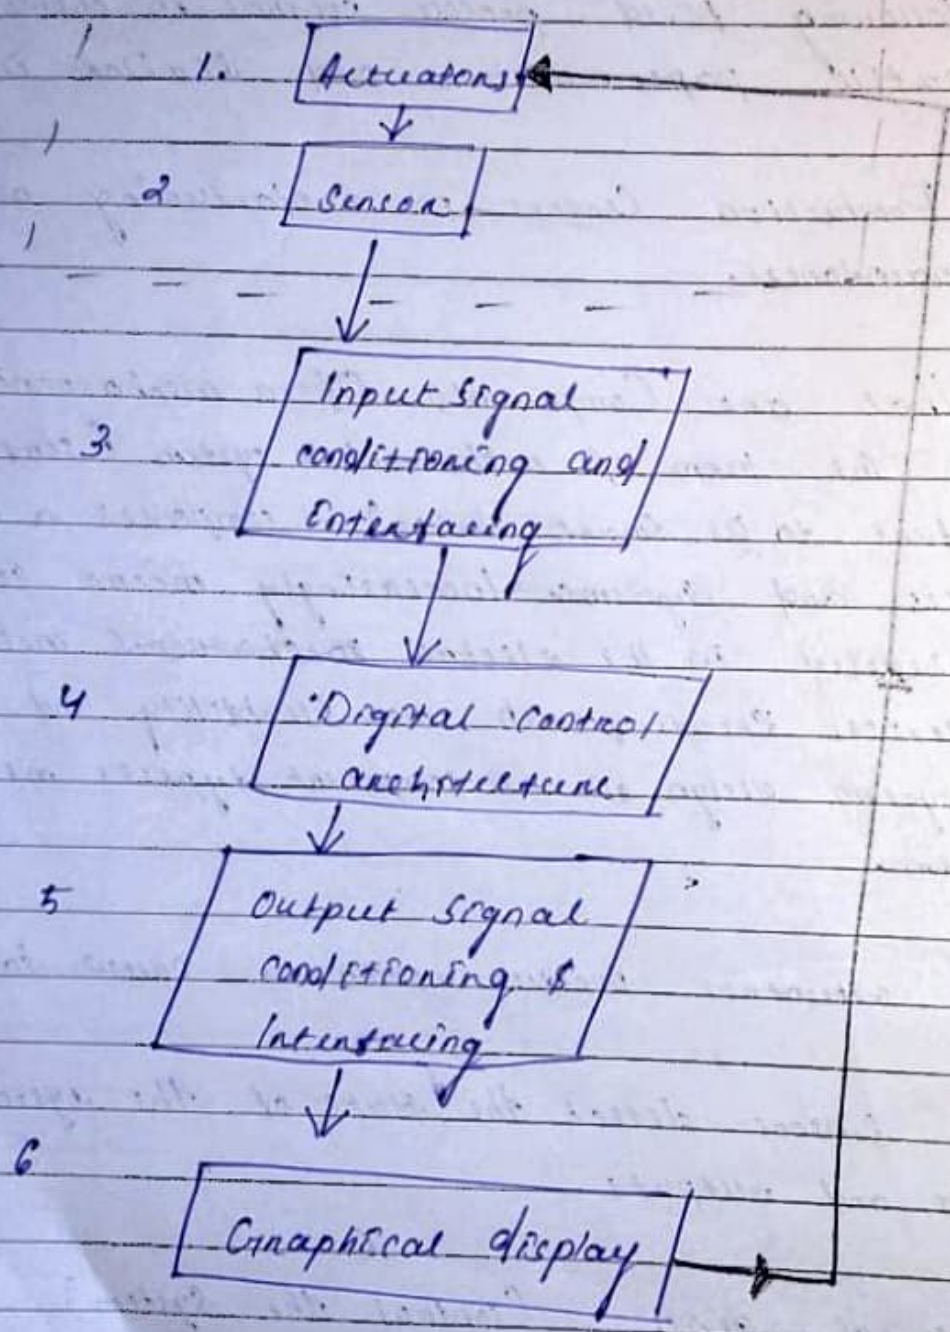 1. Actuators
2 Sensor
3. Input signal
conditioning and
Interfacing
4 Digital control
architecture
5 Output signal
conditioning &
Interfacing
6 Graphical display